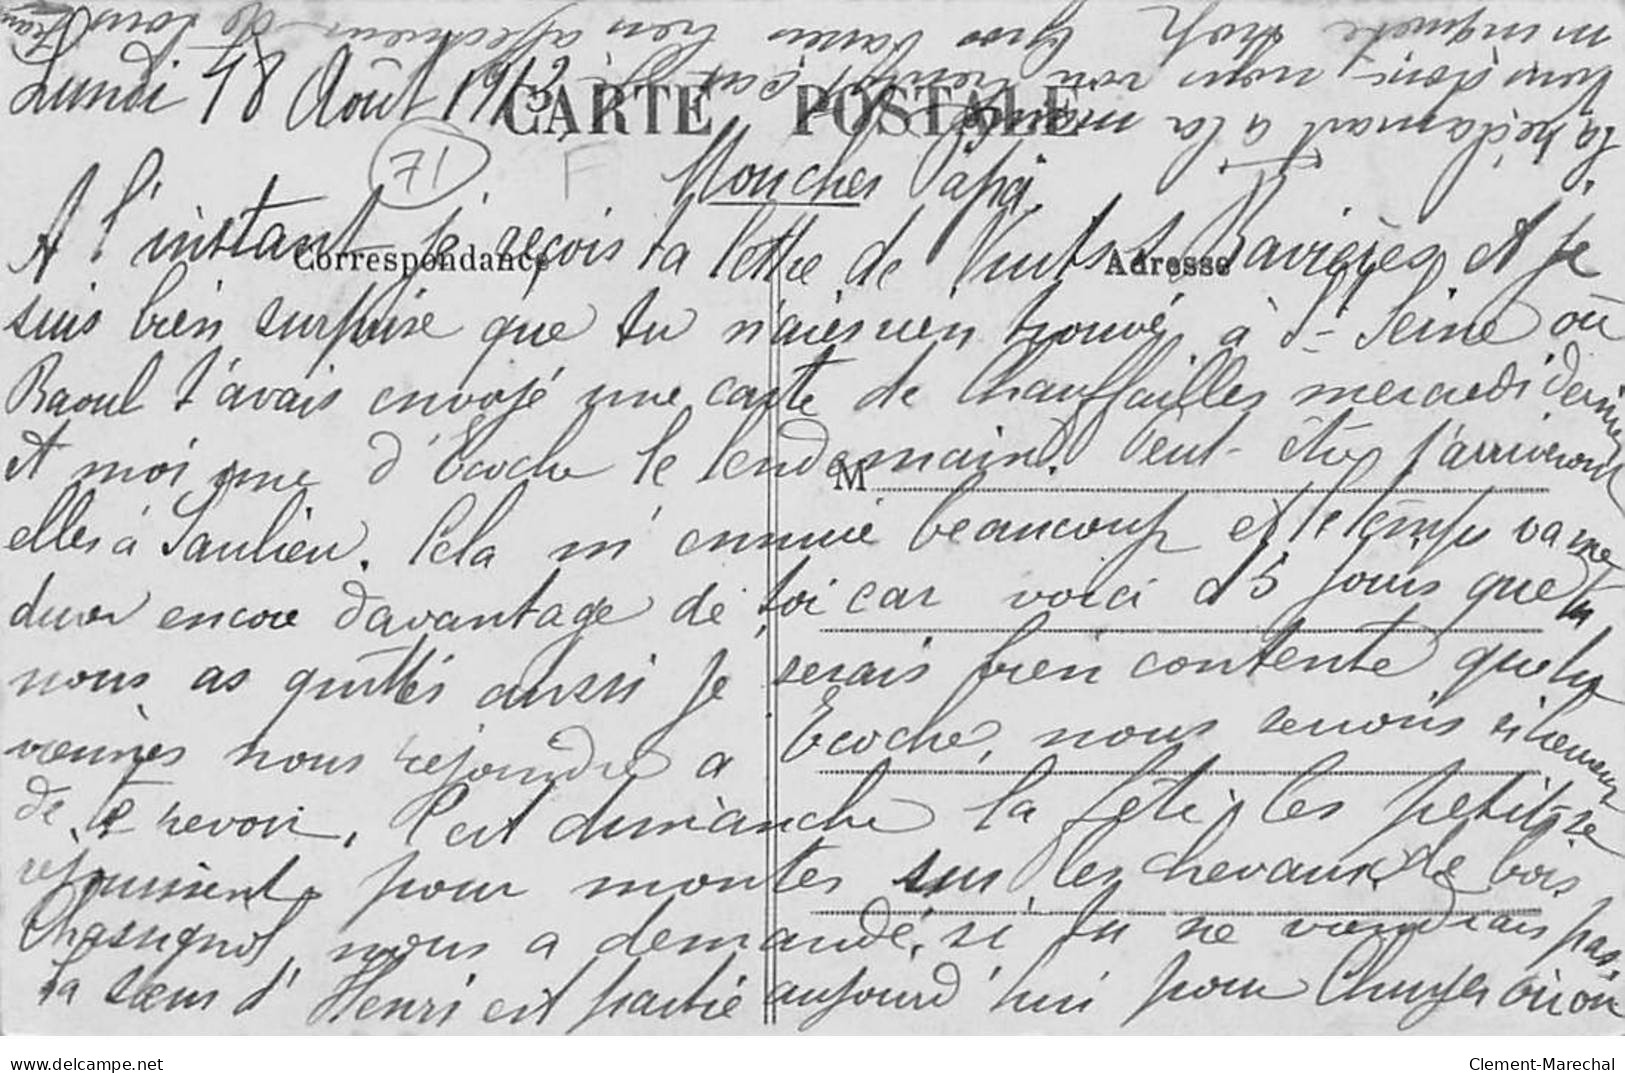 Lundi 18 Août 1913
CARTE POSTALE
71
F
Mon cher Papa,
Correspondance
Adresse
A l'instant je reçois ta lettre de Nuits s Ravières, et je
suis bien surprise que tu n'aies rien trouvé à St Seine où
Raoul t'avais envoyé une carte de Chauffailles mercredi dernier
et moi une d'Ecoche le lendemain. Peut-être t'arriveront
M
elles à Saulieu. Cela m'ennuie beaucoup et le temps va me
durer encore davantage de toi car voici 15 jours que tu
nous as quittés aussi je serais bien contente que tu
viennes nous rejoindre a Ecoche, nous serions si heureux
de te revoir. C'est dimanche la fête, les petits se
réjouissent pour monter sur les chevaux de bois.
Chassignol, nous a demandé, si tu ne viendrais pas.
La sœur d'Henri est partie aujourd'hui pour où on
la réclamait à la
nous
trop Gros baisers bien affectueux de tous
delcampe.net
Clement-Marechal